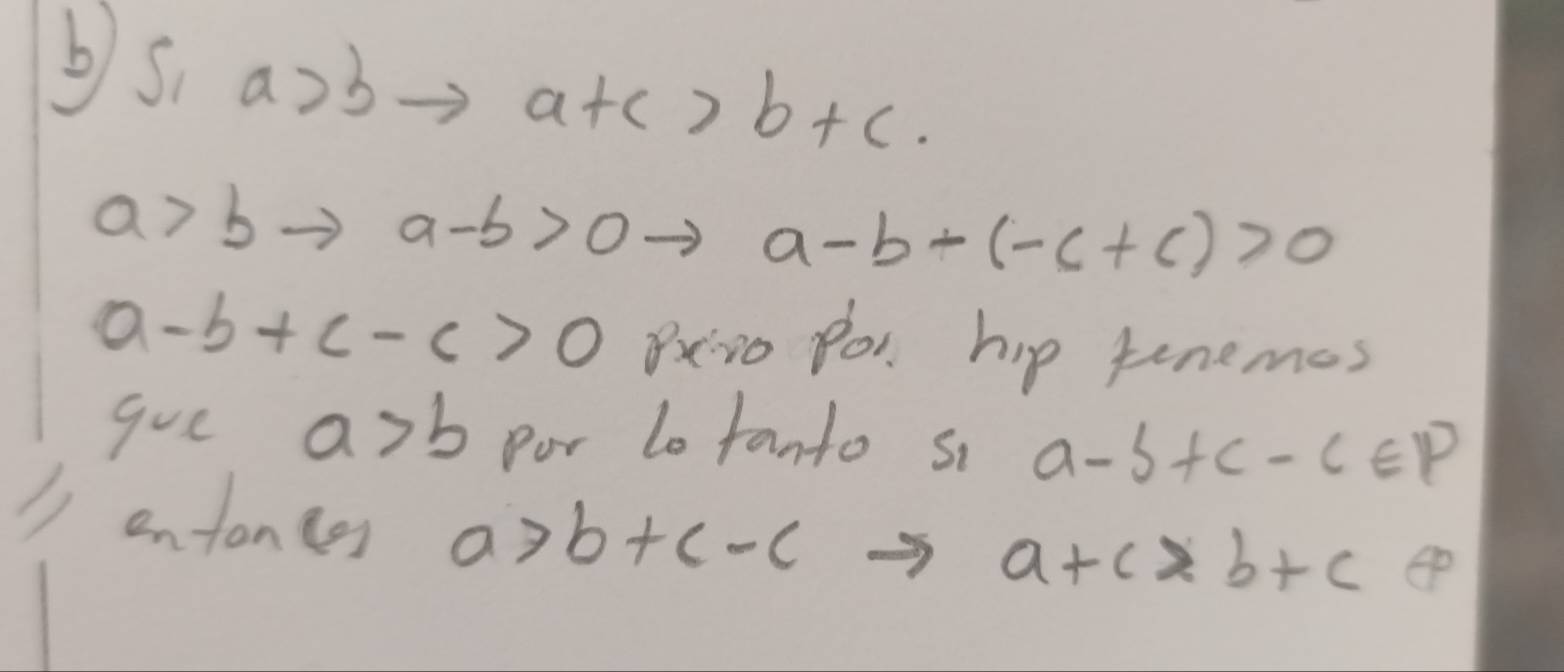 b) Si a>b → a+c > b+c.
a>b → a-b>0 → a-b+(-c+c)>0
a-b+c-c>0 pero por hip tenemos
que a>b por lo tanto si a-b+c-c∈P
entonces a>b+c-c → a+c>b+c